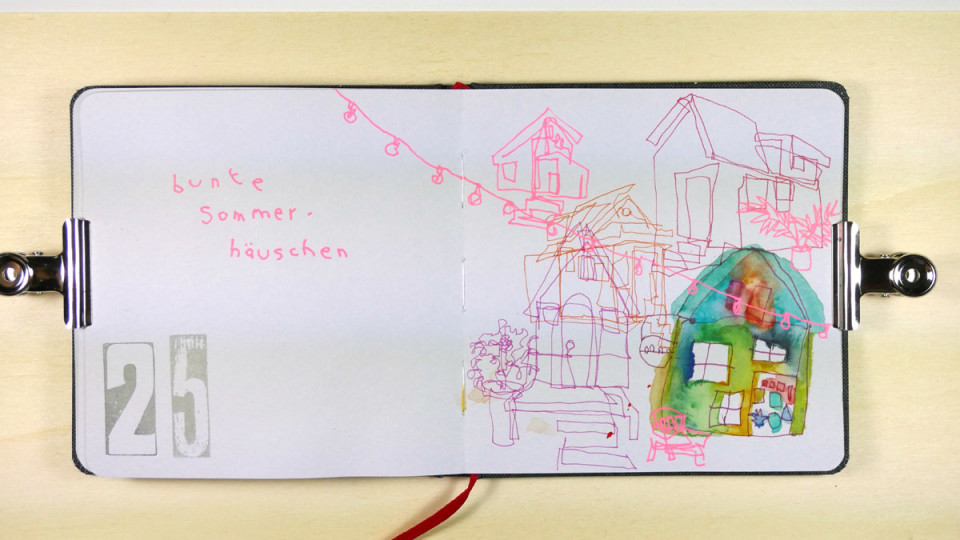 bunte
Sommer-
häuschen
25